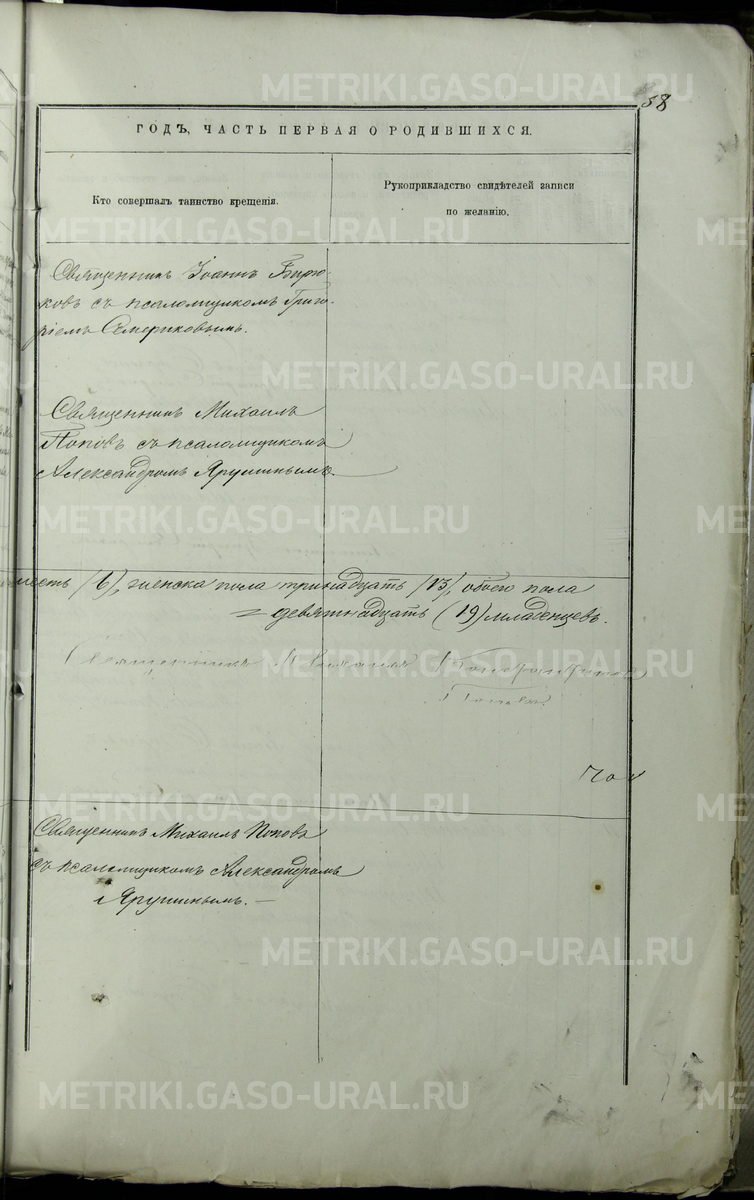 58
ГОДЪ, ЧАСТЬ ПЕРВАЯ О РОДИВШИХСЯ.
Кто совершалъ таинство крещенія.
Рукоприкладство свидѣтелей записи
по желанію.
Священникъ Іоаннъ Бирю-
ковъ съ псаломщикомъ Григо-
ріемъ Смериковымъ.
Священникъ Михаилъ
Поповъ съ псаломщикомъ
Александромъ Ярушинымъ.
шесть (6), женска пола тринадцать (13), обоего пола
= девятнадцать (19) младенцевъ.
Священникъ
Поповъ
Священникъ Михаилъ Поповъ
съ псаломщикомъ Александромъ
Ярушинымъ. —
METRIKI.GASO-URAL.RU